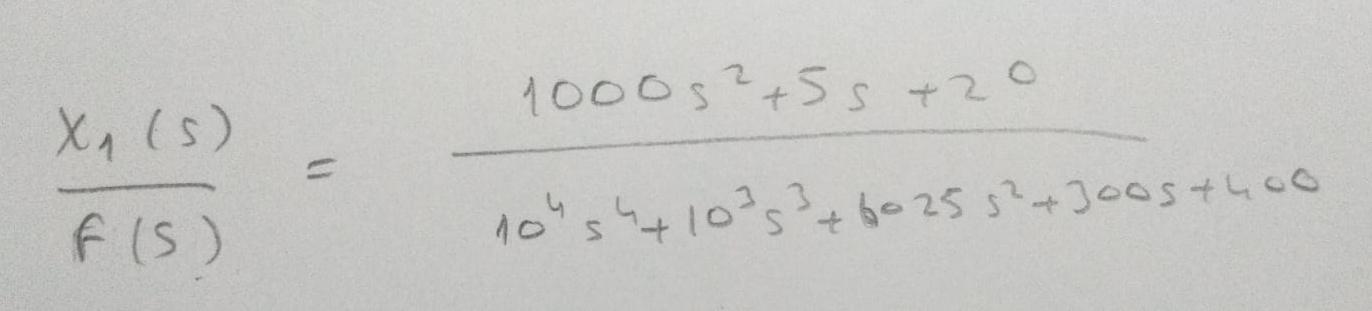 X₁(s) / F(s) = (1000s² + 5s + 20) / (10⁴s⁴ + 10³s³ + 6025s² + 300s + 400)